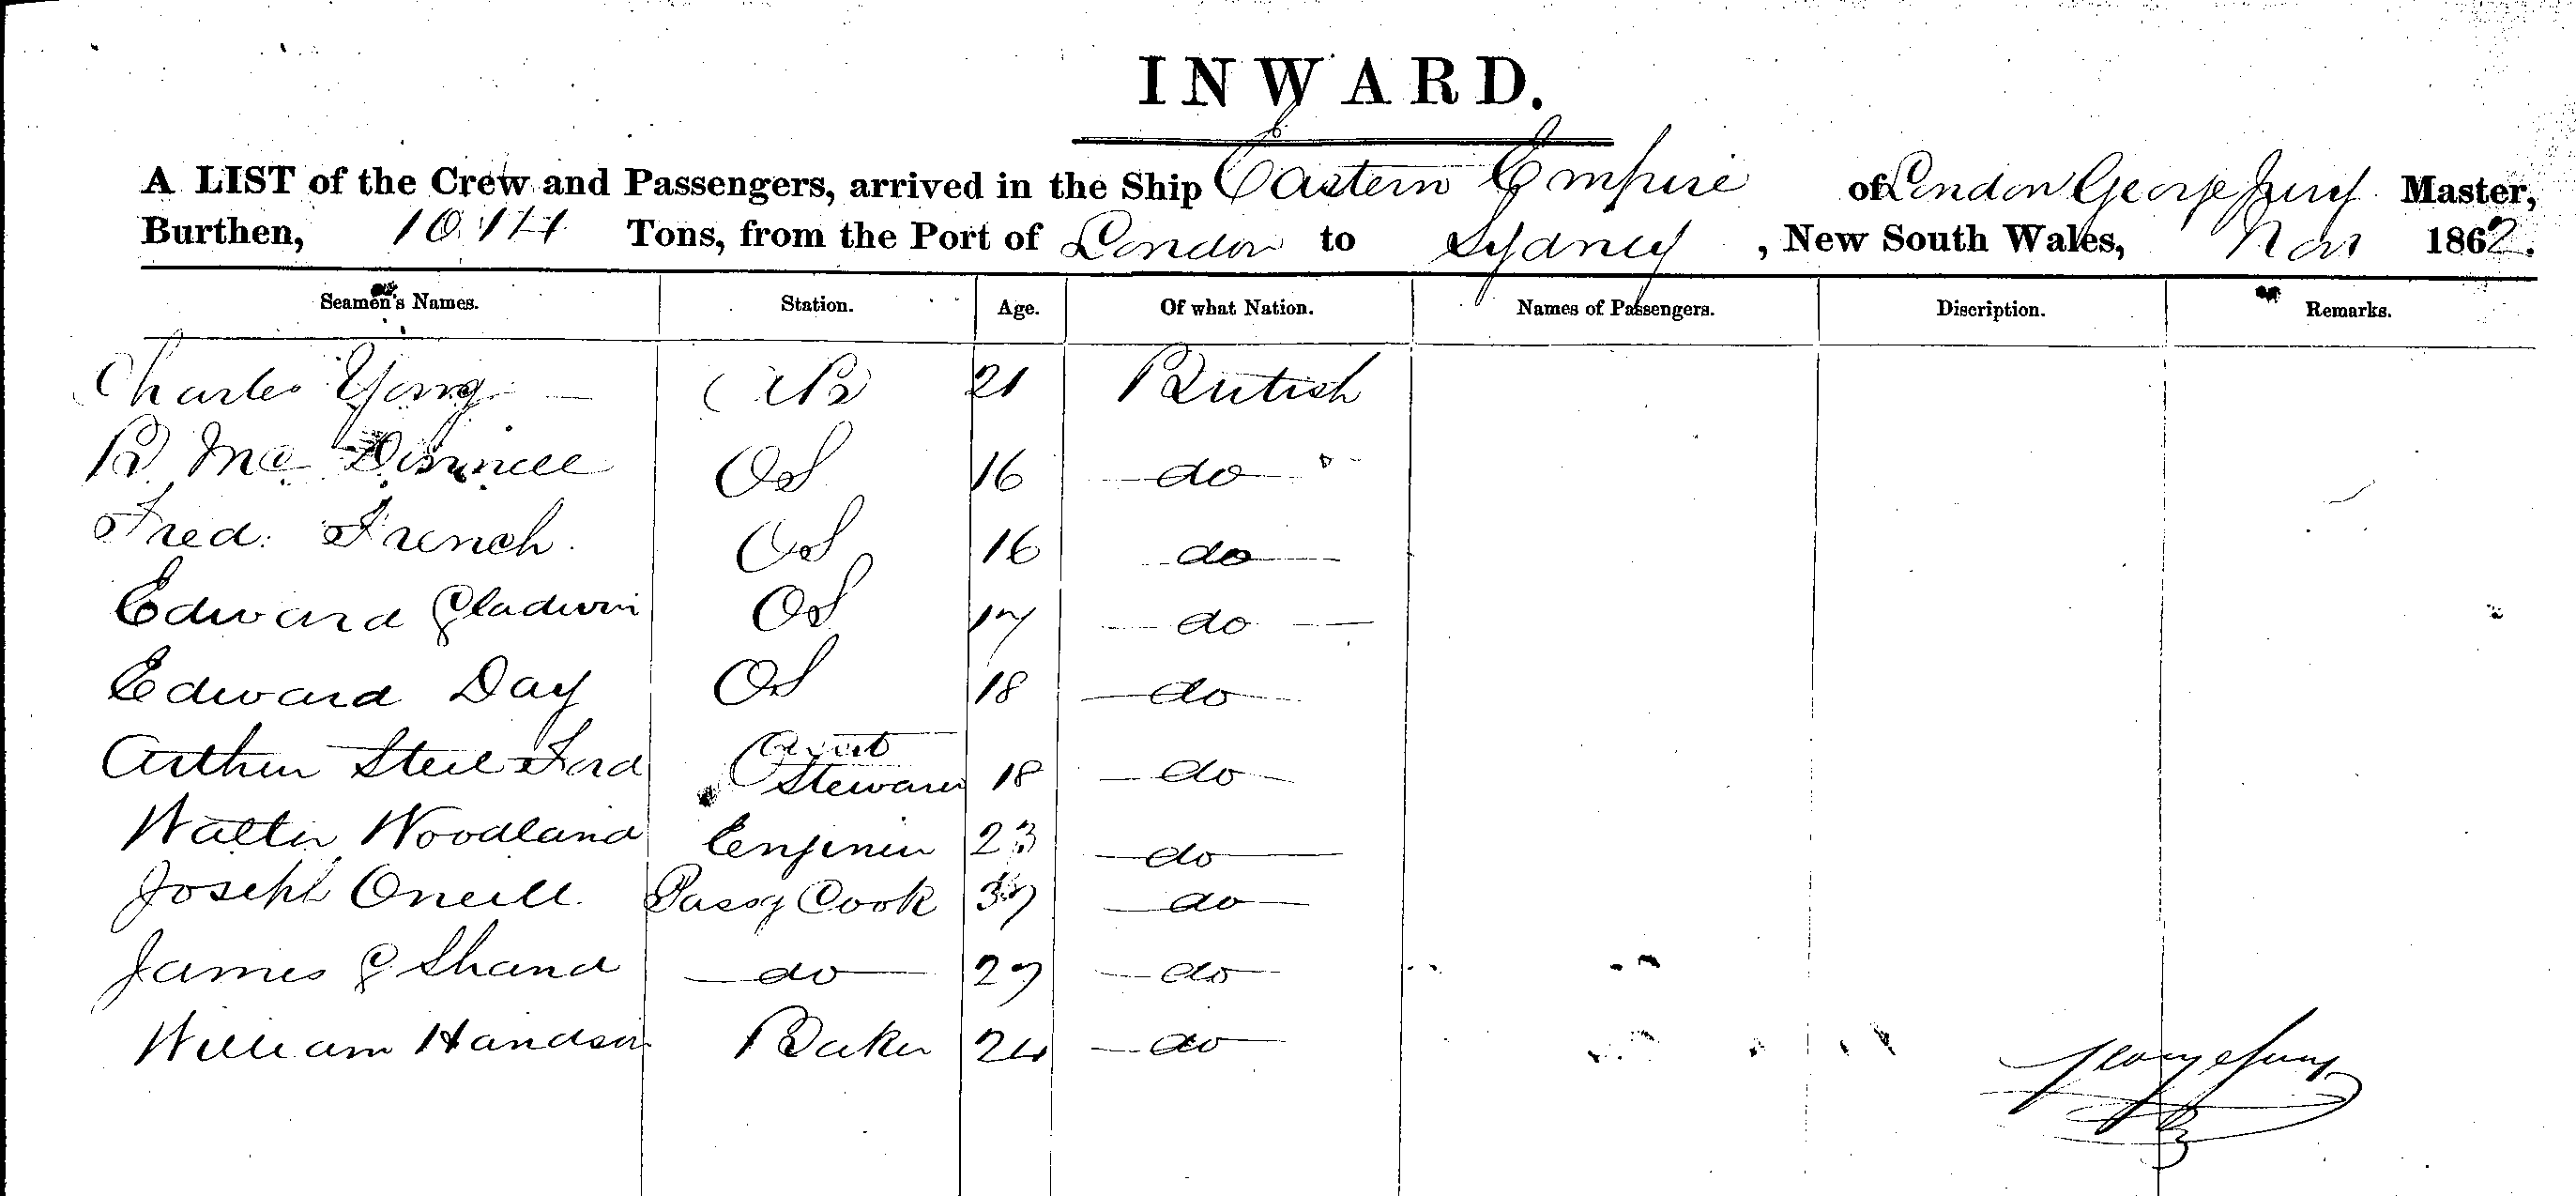 INWARD.
A LIST of the Crew and Passengers, arrived in the Ship Eastern Empire of London George Jury Master,
Burthen, Tons, from the Port of London to Sydney, New South Wales, Nov 1862.
Seamen's Names. Station. Age. Of what Nation. Names of Passengers. Discription. Remarks.
Charles Yong AB 21 British
B Mc OS 16 do
Fred: French. OS 16 do
Edward Gladwin OS 17 do
Edward Day OS 18 do
Arthur Ford Steward 18 do
Walter Woodland Enginer 23 do
Joseph Oneill Passg Cook 37 do
James G Shand do 27 do
William Handson Baker 24 do
George Jury